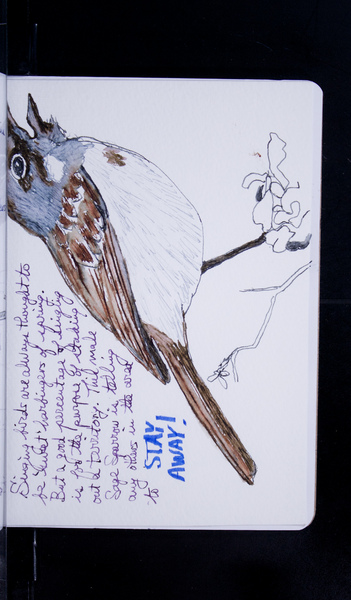 Singing birds are always thought to
be sweet harbingers of spring.
But a good percentage of singing
is for the purpose of staking
out a territory. This male
Sage Sparrow is telling
any others in the area
to STAY
AWAY!